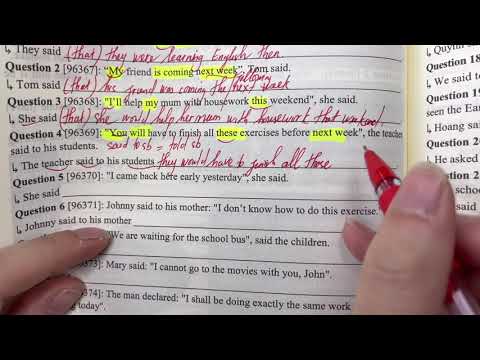 They said (that) they were learning English then
Question 2 [96367]: "My friend is coming next week", Tom said.
Tom said (that) his friend was coming the next week
following
Question 3 [96368]: "I'll help my mum with housework this weekend", she said.
She said (that) she would help her mum with housework that weekend.
Question 4 [96369]: "You will have to finish all these exercises before next week", the teacher
said to his students. said to sb = told sb
The teacher said to his students they would have to finish all those
Question 5 [96370]: "I came back here early yesterday", she said.
She said
Question 6 [96371]: Johnny said to his mother: "I don't know how to do this exercise.
Johnny said to his mother
"We are waiting for the school bus", said the children.
373]: Mary said: "I cannot go to the movies with you, John".
374]: The man declared: "I shall be doing exactly the same work
today."
Question 18
We said
Question 19
seen the Ear
Hoang sa
Question 20
He asked